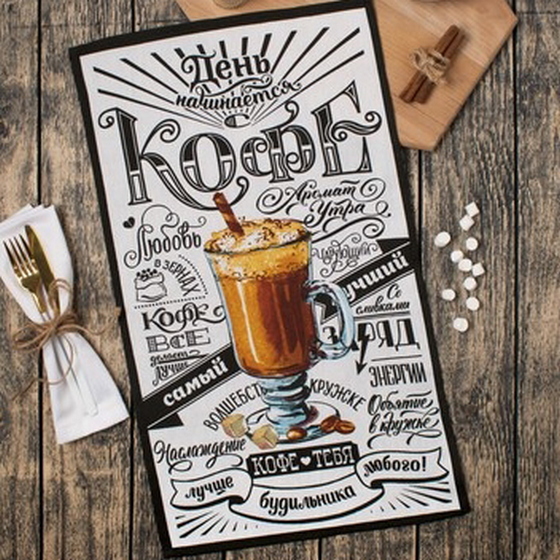 День
начинается
КОФЕ
Аромат
Утра
Любовь
В ЗЕРНАХ
Чарующий
Кофе
ВСЁ
делает
лучше
лучший
Со
сливками
ЗАРЯД
ЭНЕРГИИ
самый
ВОЛШЕБСТ
КРУЖКЕ
Объятие
в кружке
Наслаждение
КОФЕ ТЕБЯ
лучше
любого!
будильника